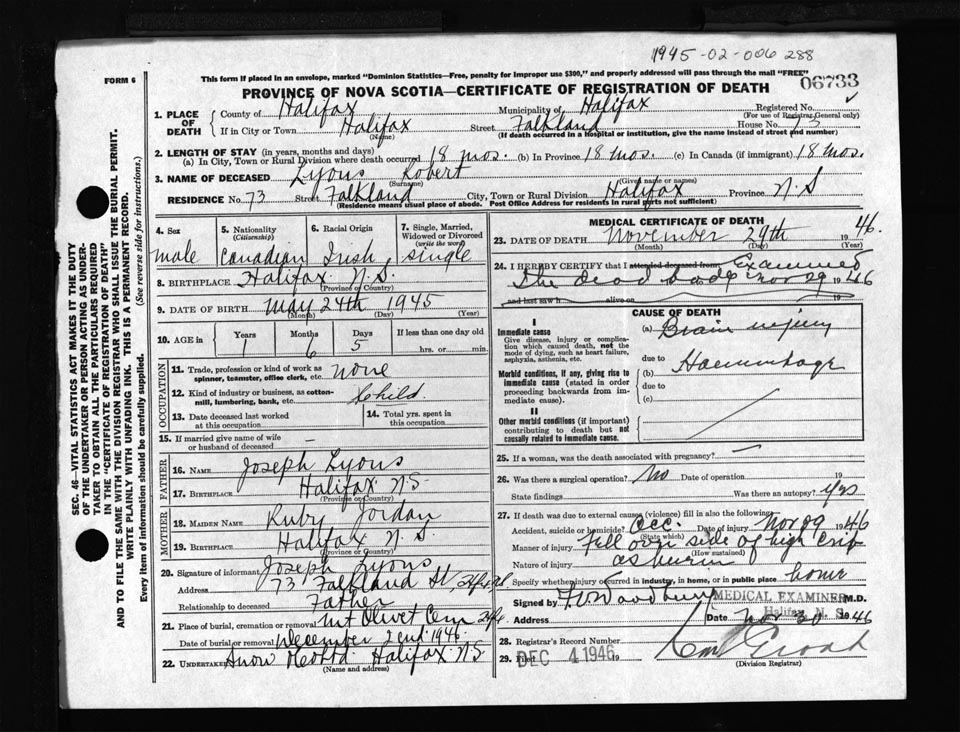 1945-02-006288
FORM 6
This form if placed in an envelope, marked "Dominion Statistics—Free, penalty for improper use $300," and properly addressed will pass through the mail "FREE"
06733
PROVINCE OF NOVA SCOTIA—CERTIFICATE OF REGISTRATION OF DEATH
1. PLACE OF DEATH { County of Halifax Municipality of Halifax Registered No.
(For use of Registrar General only)
If in City or Town Halifax (Name) Street Falkland House No. 73
(If death occurred in a hospital or institution, give the name instead of street and number)
2. LENGTH OF STAY (in years, months and days)
(a) In City, Town or Rural Division where death occurred 18 mos. (b) In Province 18 mos. (c) In Canada (if immigrant) 18 mos.
3. NAME OF DECEASED Lyons Robert
(Surname) (Given name or names)
RESIDENCE No. 73 Street Falkland City, Town or Rural Division Halifax Province N.S
(Residence means usual place of abode. Post Office Address for residents in rural parts not sufficient)
4. Sex male
5. Nationality (Citizenship) Canadian
6. Racial Origin Irish
7. Single, Married, Widowed or Divorced (write the word) single
8. BIRTHPLACE Halifax N.S.
(Province or Country)
9. DATE OF BIRTH May 24th 1945
(Month) (Day) (Year)
10. AGE in Years 1 Months 6 Days 5 If less than one day old hrs. or min.
OCCUPATION
11. Trade, profession or kind of work as spinner, teamster, office clerk, etc. none
12. Kind of industry or business, as cotton-mill, lumbering, bank, etc. Child.
13. Date deceased last worked at this occupation
14. Total yrs. spent in this occupation
15. If married give name of wife or husband of deceased —
FATHER
16. NAME Joseph Lyons
17. BIRTHPLACE Halifax N.S.
(Province or Country)
MOTHER
18. MAIDEN NAME Ruby Jordan
19. BIRTHPLACE Halifax N.S.
(Province or Country)
20. Signature of informant Joseph Lyons
Address 73 Falkland St,
Relationship to deceased Father
21. Place of burial, cremation or removal Mt Olivet Cem
Date of burial or removal December 2end 1946
22. UNDERTAKER Snow & Co Ltd. Halifax N.S
(Name and address)
MEDICAL CERTIFICATE OF DEATH
23. DATE OF DEATH November 29th 1946.
(Month) (Day) (Year)
24. I HEREBY CERTIFY that I attended deceased from Examined
The dead body Nov 29 1946
and last saw h alive on 19
CAUSE OF DEATH
I
Immediate cause
Give disease, injury or complication which caused death, not the mode of dying, such as heart failure, asphyxia, asthenia, etc.
(a) Brain injury
due to
Morbid conditions, if any, giving rise to immediate cause (stated in order proceeding backwards from immediate cause).
(b) Haemorrhage
due to
(c)
II
Other morbid conditions (if important) contributing to death but not causally related to immediate cause.
25. If a woman, was the death associated with pregnancy? —
26. Was there a surgical operation? No Date of operation 19
State findings Was there an autopsy? Yes
27. If death was due to external causes (violence) fill in also the following:
Accident, suicide or homicide? Acc. Date of injury Nov 29 1946
(State which)
Manner of injury Fell over side of high crib
(How sustained)
Nature of injury as burin
Specify whether injury occurred in industry, in home, or in public place home
Signed by MEDICAL EXAMINER M.D.
Halifax N. S.
Address Date Nov 30 1946
28. Registrar's Record Number
29. Filed DEC 4 1946 19
(Division Registrar)
SEC. 46—VITAL STATISTICS ACT MAKES IT THE DUTY
OF THE UNDERTAKER OR PERSON ACTING AS UNDER-
TAKER TO OBTAIN ALL THE PARTICULARS REQUIRED
IN THE "CERTIFICATE OF REGISTRATION OF DEATH"
AND TO FILE THE SAME WITH THE DIVISION REGISTRAR WHO SHALL ISSUE THE BURIAL PERMIT.
WRITE PLAINLY WITH UNFADING INK. THIS IS A PERMANENT RECORD.
Every item of information should be carefully supplied. (See reverse side for instructions.)